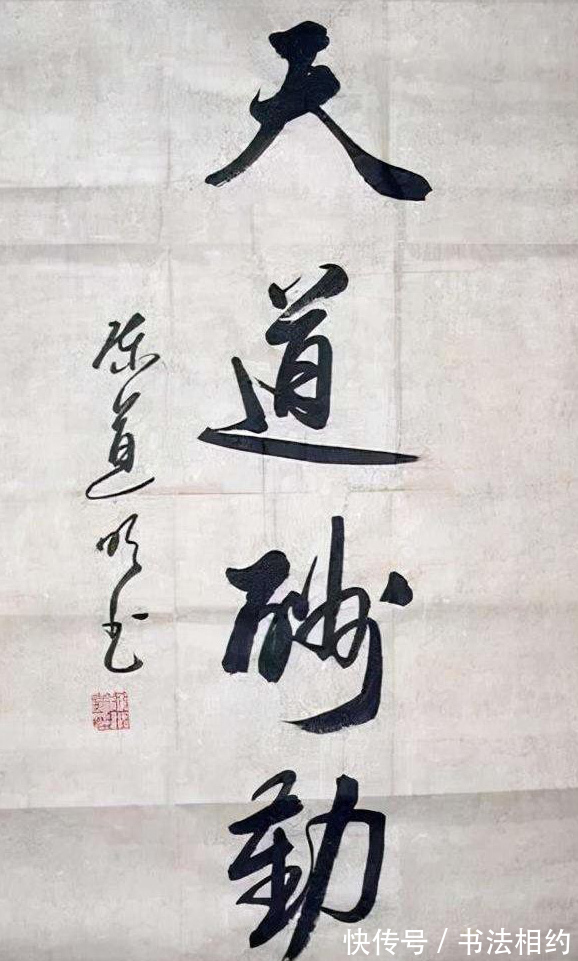 天道酬勤
陈道明书
快传号 / 书法相约